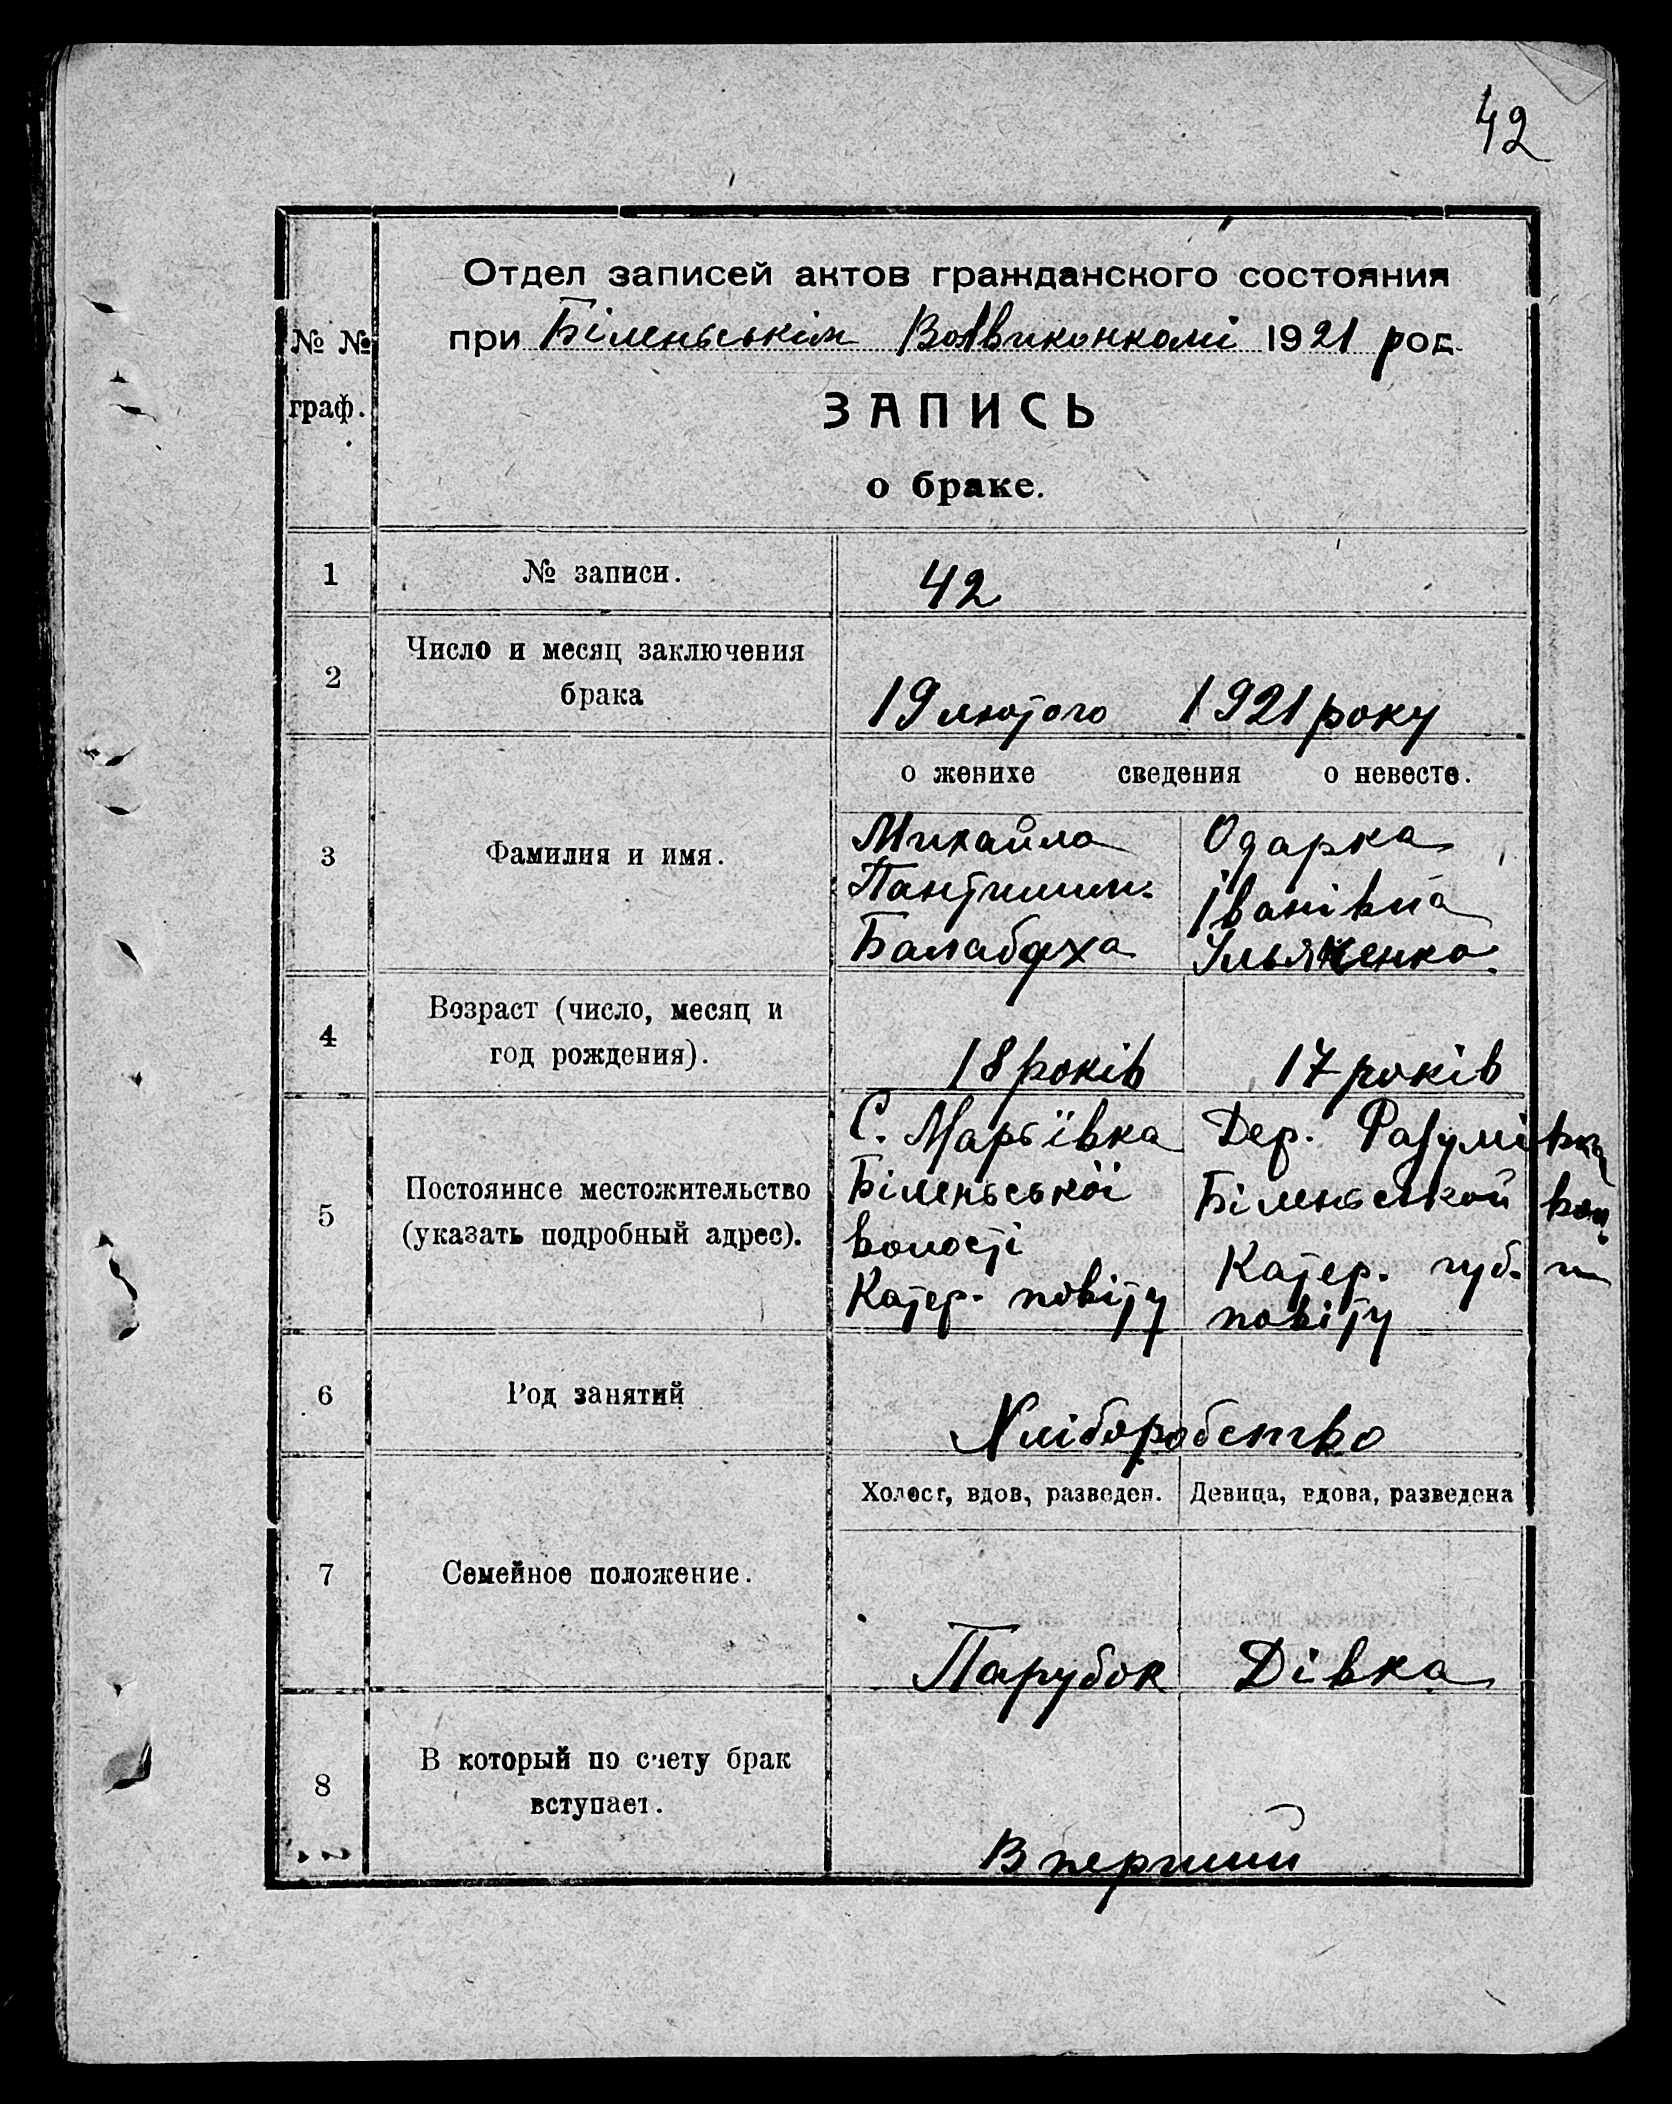 42
Отдел записей актов гражданского состояния
при Біленьськім Волвиконкомі 1921 род
№ №
граф.
ЗАПИСЬ
о браке.
1 № записи. 42
2 Число и месяц заключения
брака
19 лютого 1921 року
о женихе сведения о невесте.
3 Фамилия и имя.
Михайло Одарка
Пантилим. Іванівна
Балабуха Ільяшенко.
4 Возраст (число, месяц и
год рождения).
18 років 17 років
5 Постоянное местожительство
(указать подробный адрес).
С. Марьївка Дер. Разумівка
Біленьської Біленьской вол.
волості
Катер. повіту Катер. губ. и
повіту
6 Род занятий
Хліборобство
Холост, вдов, разведен. Девица, вдова, разведена
7 Семейное положение.
Парубок Дівка
8 В который по счету брак
вступает.
В первий